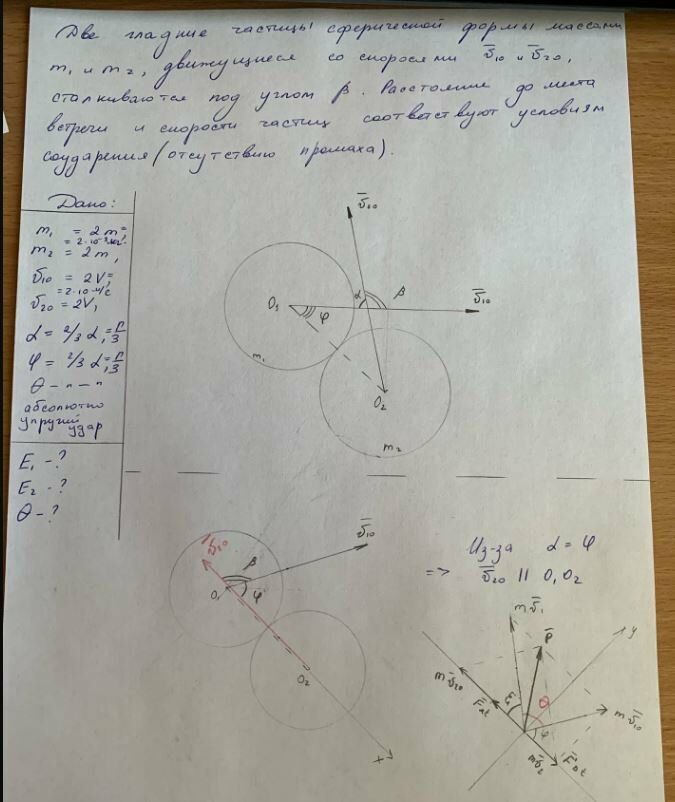 Две гладкие частицы сферической формы массами
m₁ и m₂, движущиеся со скоросями v̅₁₀ и v̅₂₀,
сталкиваются под углом β. Расстояние до места
встречи и скорости частиц соответствуют условиям
соударения (отсутствию промаха).
Дано:
m₁ = 2m₁
m₂ = 2m,
v̅₁₀ = 2V₁
v̅₂₀ = 2V,
α = 2/3 α, = π/3
φ = 2/3 α, = π/3
θ - " - "
абсолютно
упругий
удар
E₁ - ?
E₂ - ?
θ - ?
v̅₁₀
O₁
φ
α
β
v̅₁₀
m₁
O₂
m₂
v̅₂₀
β
v̅₁₀
O₁
φ
O₂
x
Из-за α = φ
=> v̅₂₀ || O₁O₂
mv̅₁
P̅
y
mv̅₂₀
F̅Δt
E₁
θ
mv̅₁₀
φ
mv̅₂
F̅Δt